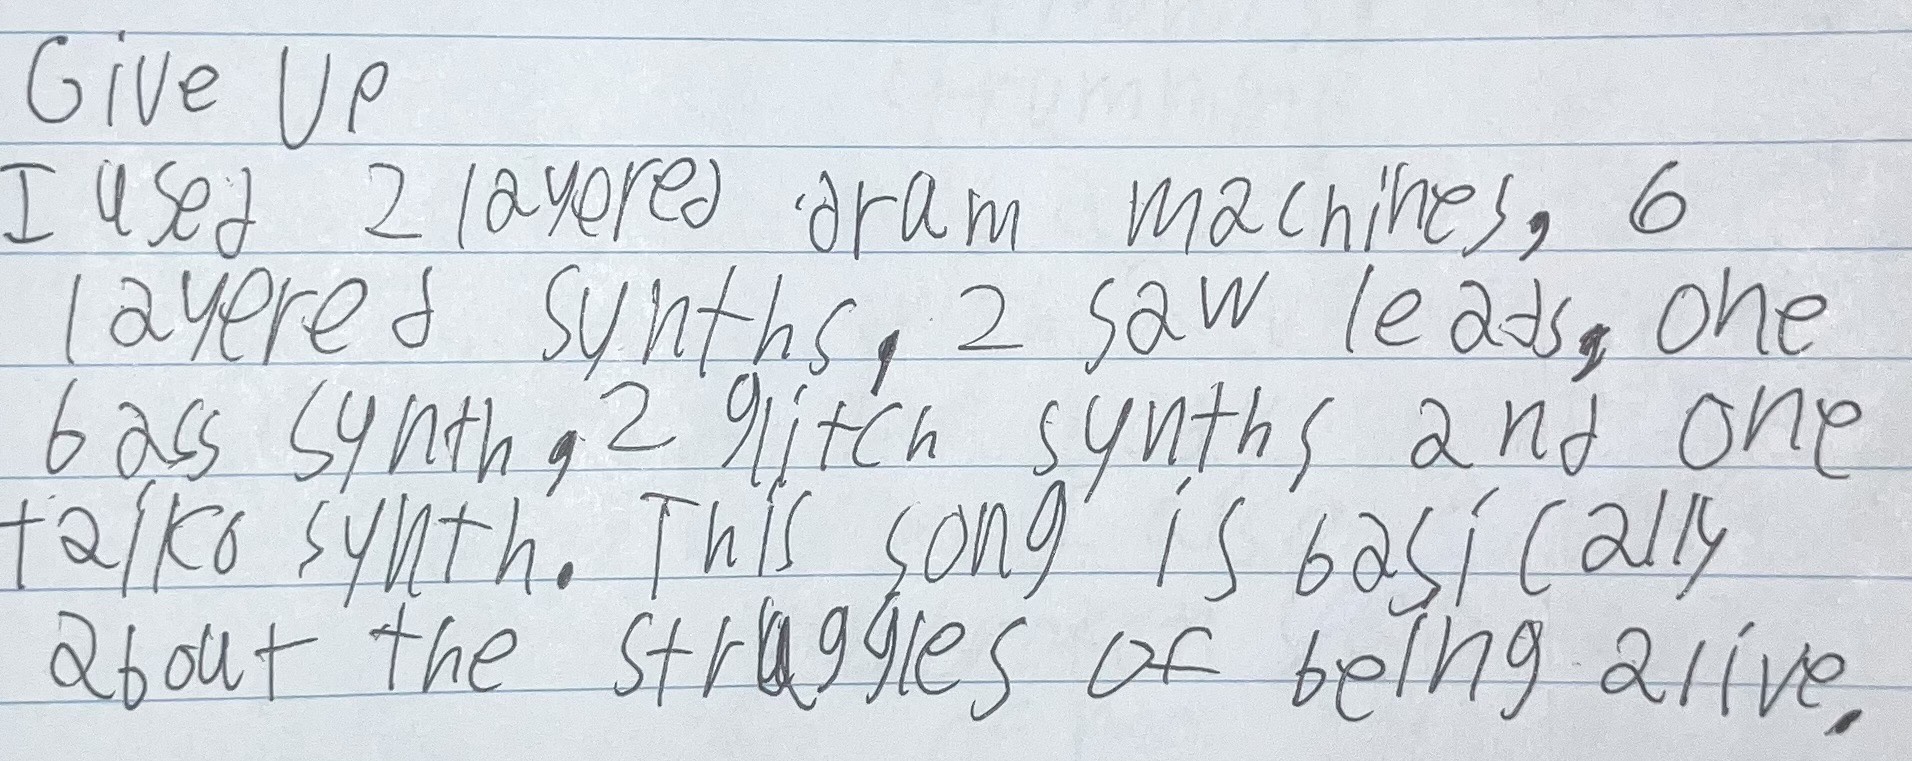 Give Up
I used 2 layered drum machines, 6
layered synths, 2 saw leads, one
bass synth, 2 glitch synths and one
taiko synth. This song is basically
about the struggles of being alive.